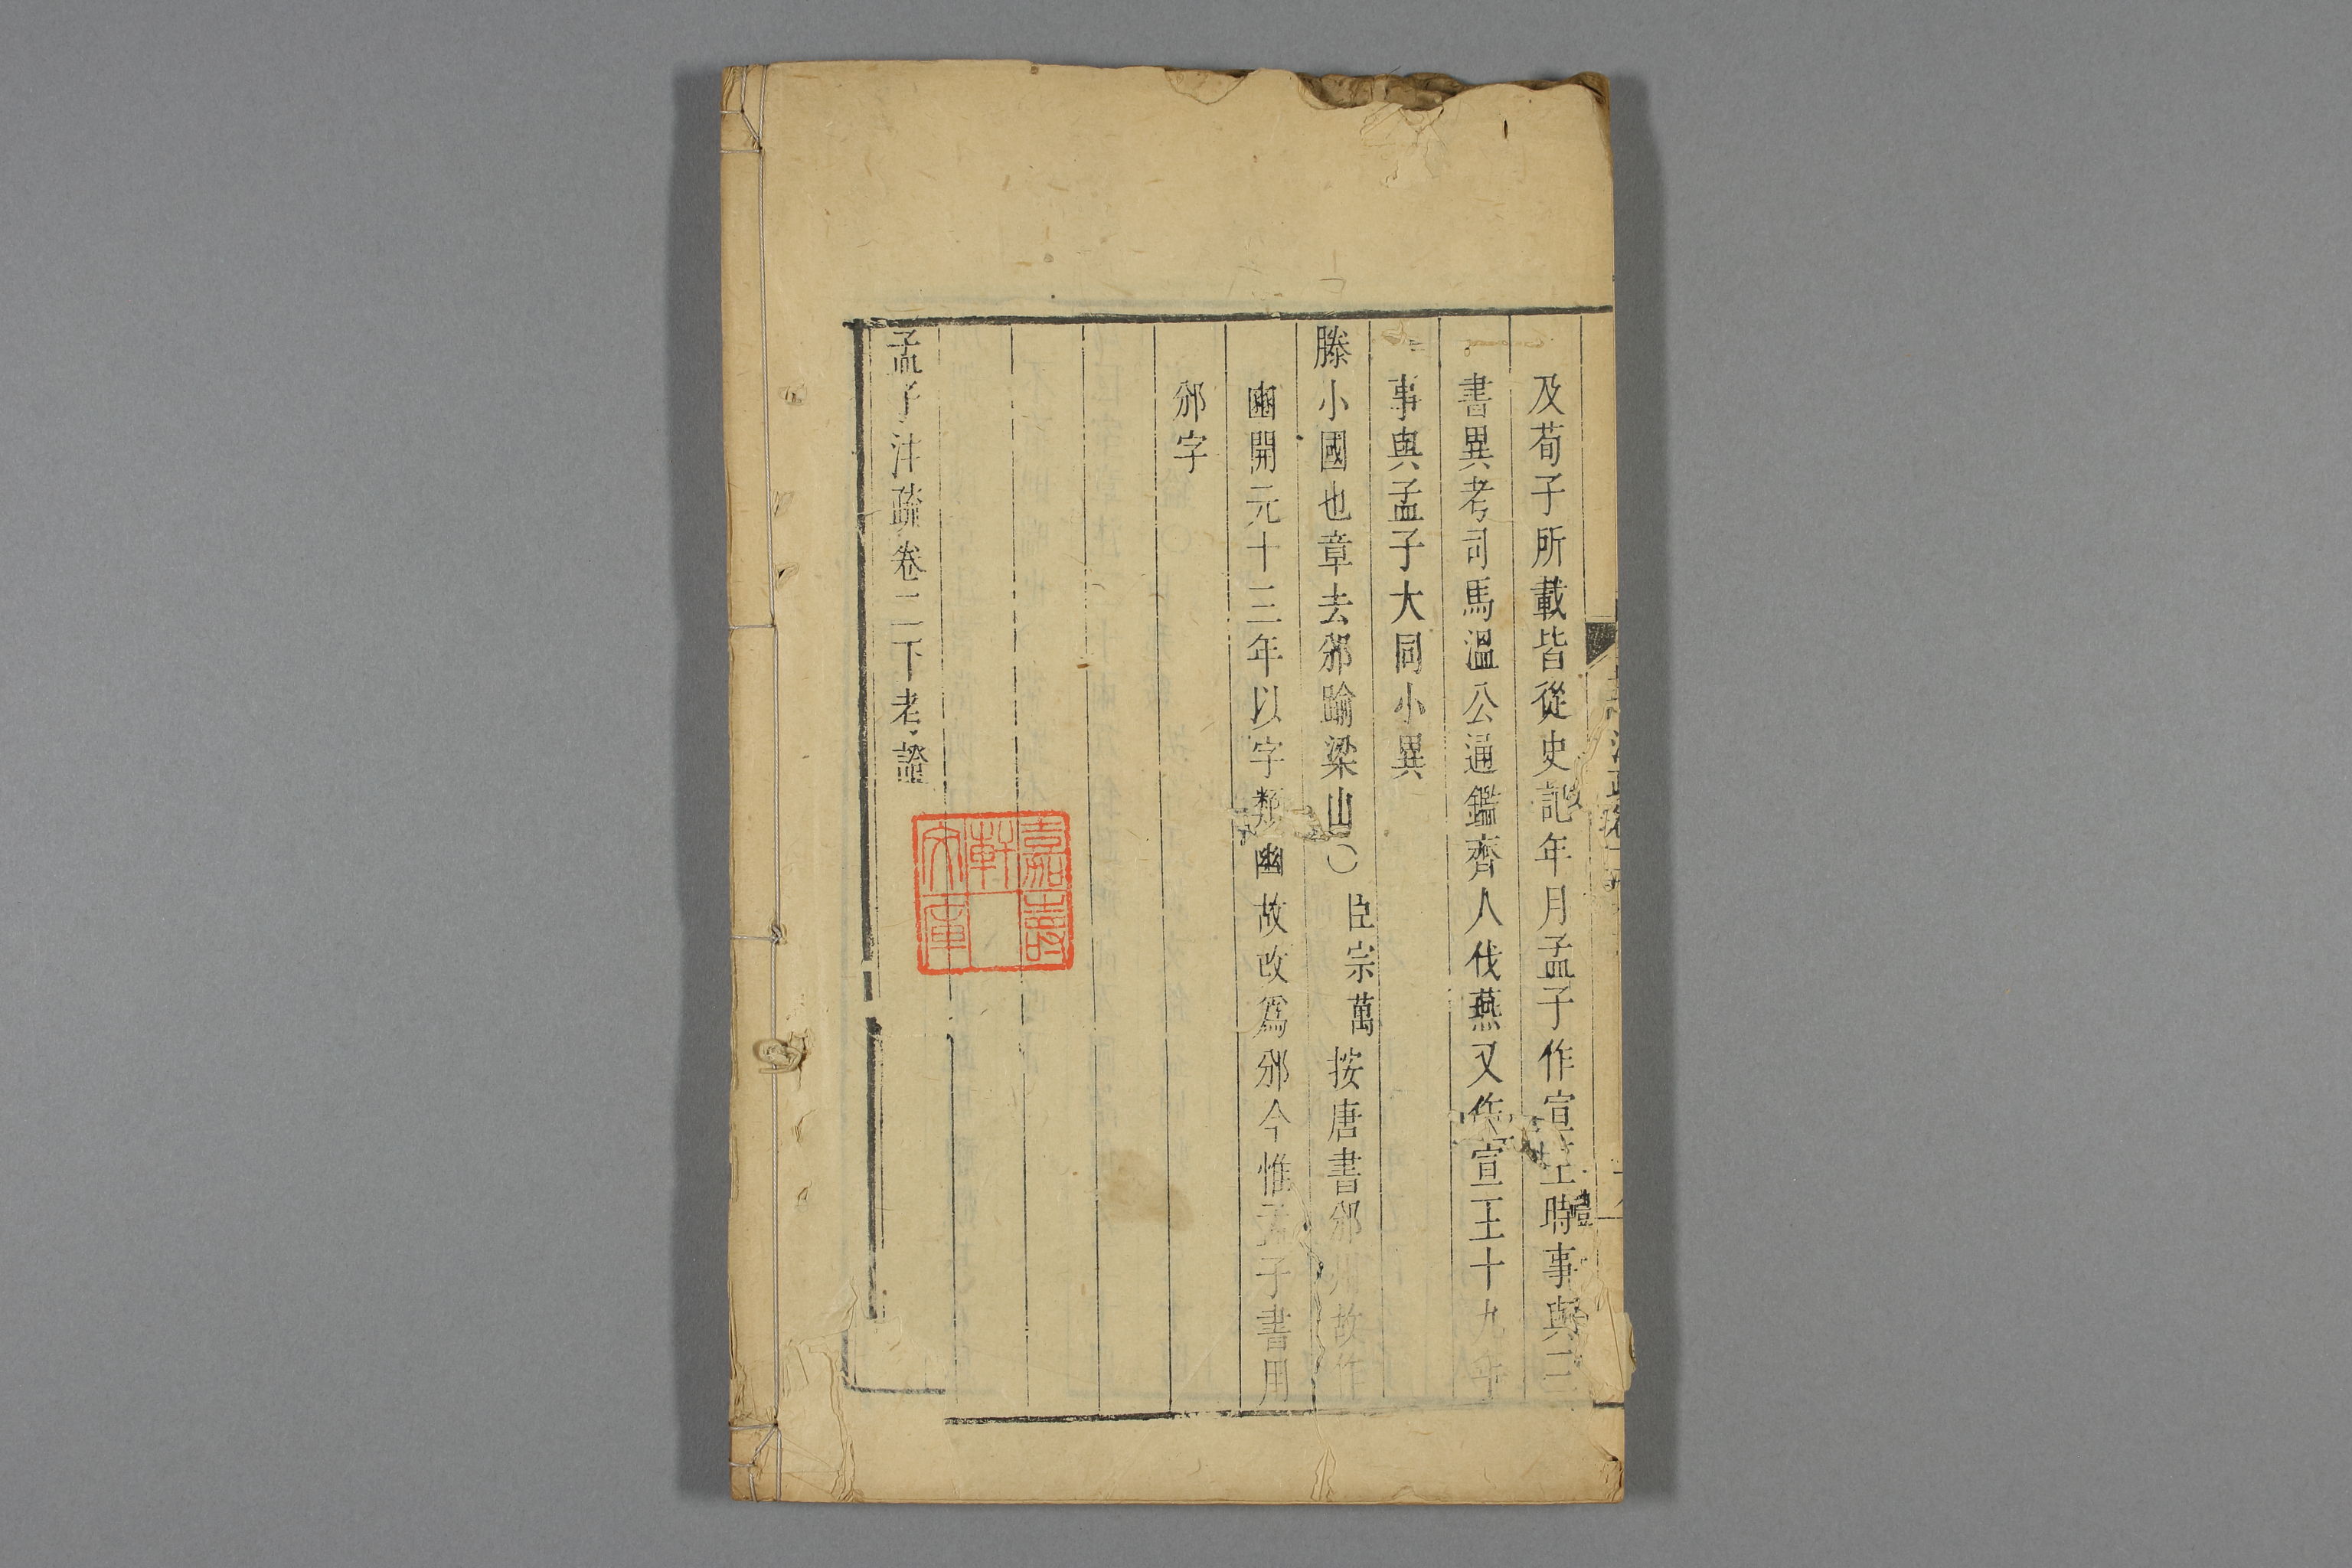 及荀子所載皆從史記年月孟子作宣王時事與三
書異考司馬溫公通鑑齊人伐燕又作宣王十九年
事與孟子大同小異
滕小國也章去邠踰梁山〇臣宗萬按唐書邠州故作
豳開元十三年以字類幽故改爲邠今惟孟子書用
邠字
孟子注疏卷二下考證
嘉壽軒文庫